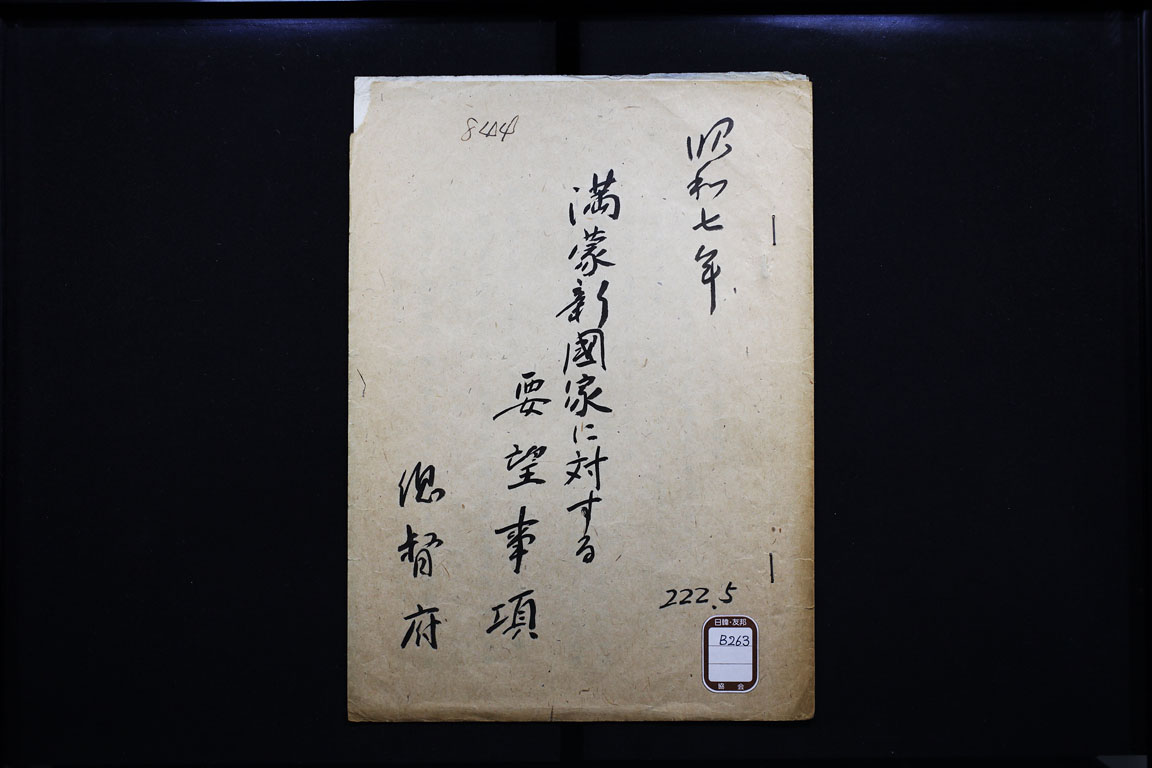 昭和七年
満蒙新國家に対する
要望事項
総督府
844
222.5
日韓・友邦
B263
協会